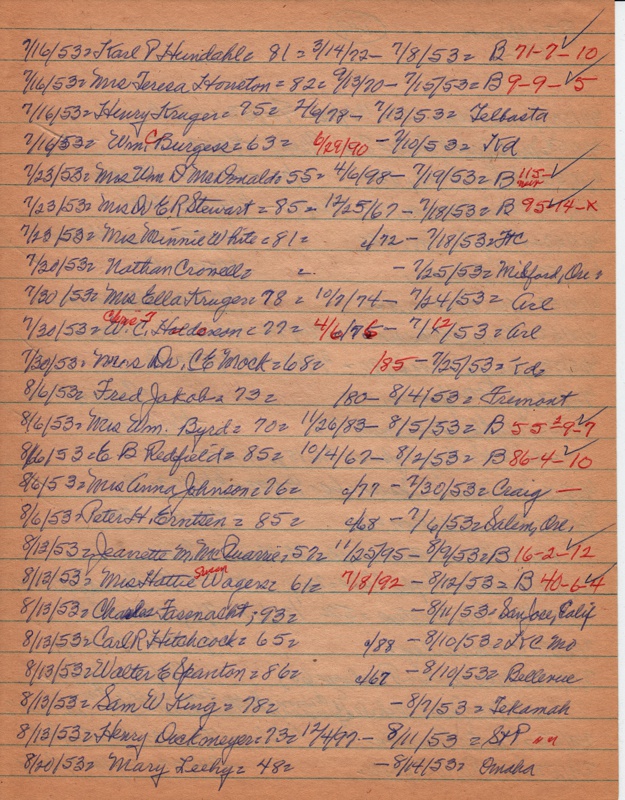 7/16/53= Karl P Heindahl= 81 = 3/14/72 - 7/8/53= B 71-7-10 ✓
7/16/53= Mrs Teresa Houston = 82= 9/13/70 - 7/15/53= B 9-9-5 ✓
7/16/53= Henry Kruger= 75= 2/6/78 - 7/13/53= Telbasta
7/16/53= Wm. C Burgess= 63= 6/29/90 - 7/10/53=
7/23/53= Mrs Wm D McDonald= 55= 4/6/98 - 7/19/53= B 115- ✓
7/23/53= Mrs D. E R Stewart = 85= 12/25/67 - 7/18/53= B 95-14-x ✓
7/23/53= Mrs Minnie White = 81= c/72 - 7/18/53= HC
7/30/53= Nathan Cronell= - 7/25/53= Milford, Ore =
7/30/53= Mrs Ella Kruger= 78 = 10/7/74 - 7/24/53= Arl
7/30/53= W. C. = 77= 4/6/76 - 7/12/53= Arl
7/30/53= Mrs Dr. C E Mock= 68= /85 - 7/25/53=
8/6/53= Fred Jakob= 73= /80 - 8/4/53= Fremont
8/6/53= Mrs Wm. Byrd= 70= 11/26/83 - 8/5/53= B 55-9-7 ✓
8/6/53= E B Redfield= 85= 10/4/67 - 8/2/53= B 86-4-10 ✓
8/6/53= Mrs Anna Johnson= 76= c/77 - 7/30/53= Craig —
8/6/53= Peter H. Erntsen = 85= c/68 - 7/6/53= Salem, Ore.
8/13/53= Jeanette M. McQuarrie, 57= 11/25/95 - 8/9/53= B 16-2-12 ✓
8/13/53= Mrs Hattie Susan Wagers= 61= 7/8/92 - 8/12/53= B 40-6-4 ✓
8/13/53= Charles Fassnacht, 93= - 8/11/53= San Jose, Calif
8/13/53= Carl R Hitchcock= 65= c/88 - 8/10/53= K C Mo
8/13/53= Walter E Spanton= 86= c/67 - 8/10/53= Bellevue
8/13/53= Sam W King= 78= - 8/7/53= Tekamah
8/13/53= Henry Dockmeyer= 73= 12/4/97 - 8/11/53 = StP
8/20/53= Mary Leehy= 48= - 8/14/53= Omaha